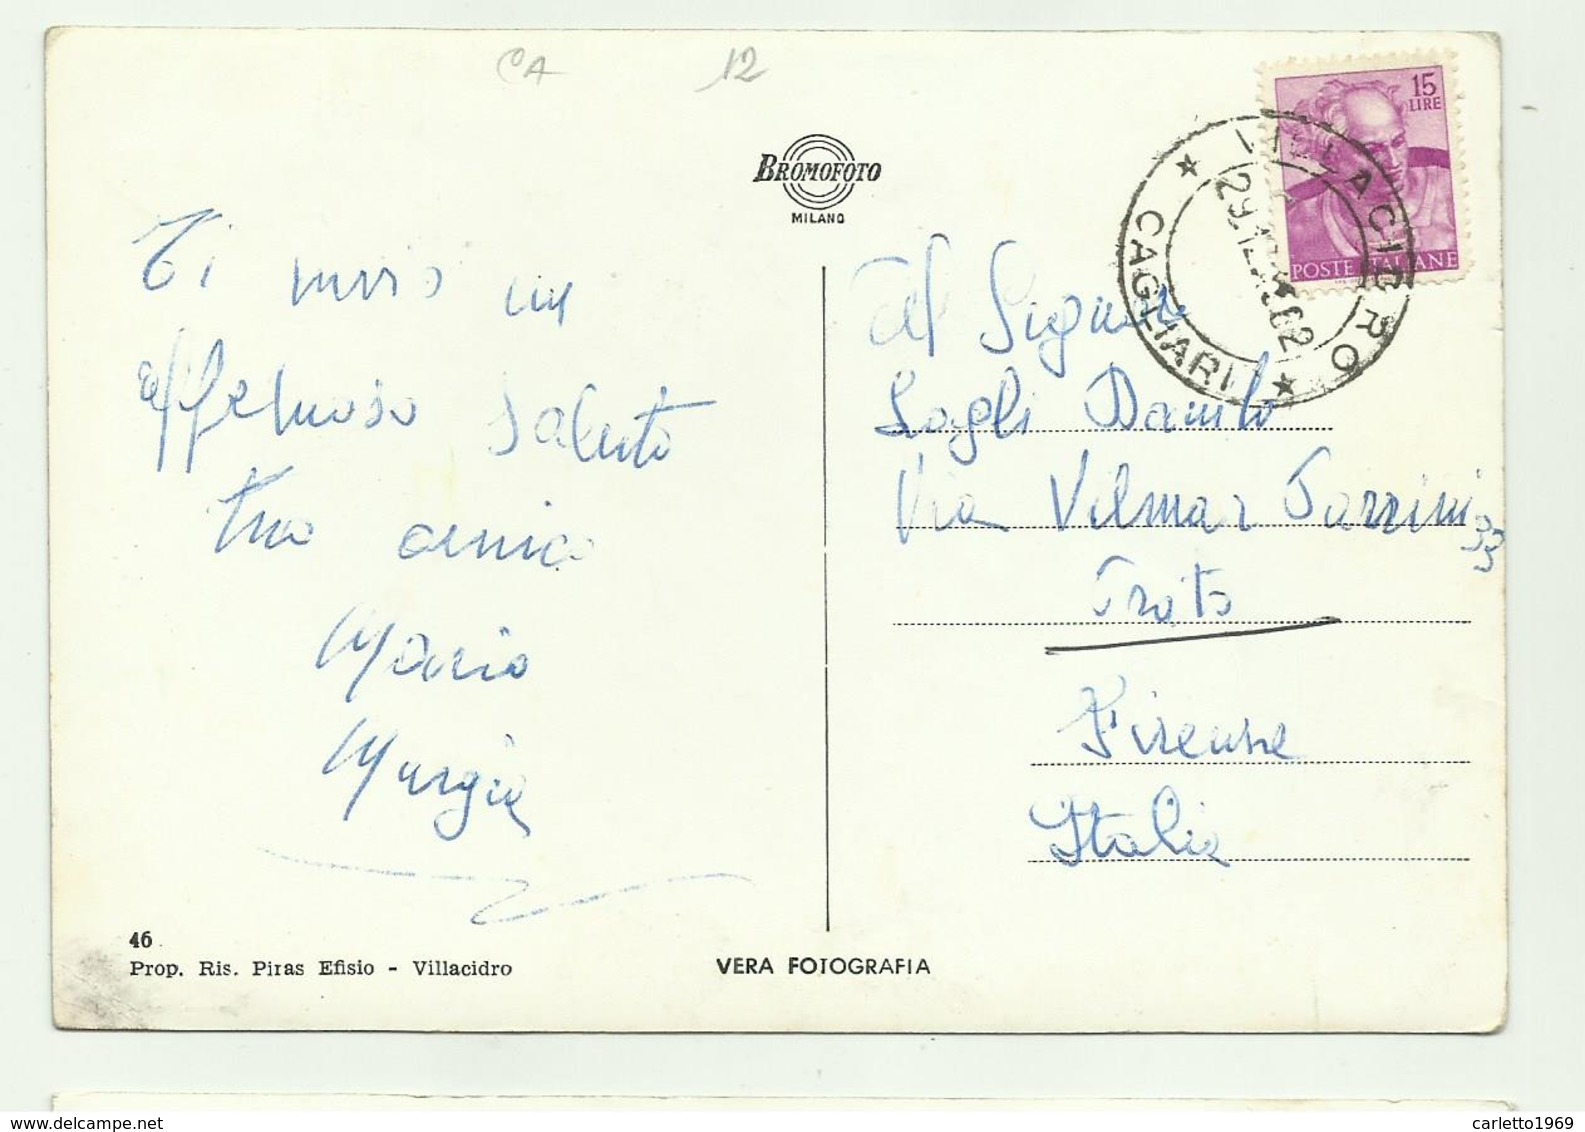 CA 12
BROMOFOTO
MILANO
15
LIRE
POSTE ITALIANE
VILLACIDRO
CAGLIARI
Ti invio un
affettuoso saluto
tuo amico
Mario
Murgia
Al Signor
Danilo
Via Vilmar Parrini
33
Prato
Firenze
Italia
46
Prop. Ris. Piras Efisio - Villacidro
VERA FOTOGRAFIA
carletto1969